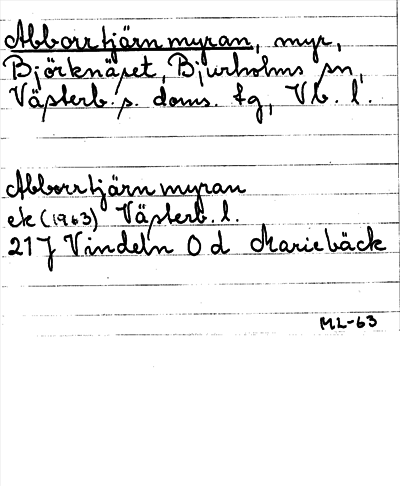 Abborrtjärnmyran, myr,
Björknäset, Bjurholms sn,
Västerb. s. doms. tg, Vb. l.
Abborrtjärnmyran
ek (1963) Västerb. l.
21J Vindeln 0 d Mariebäck
ML-63